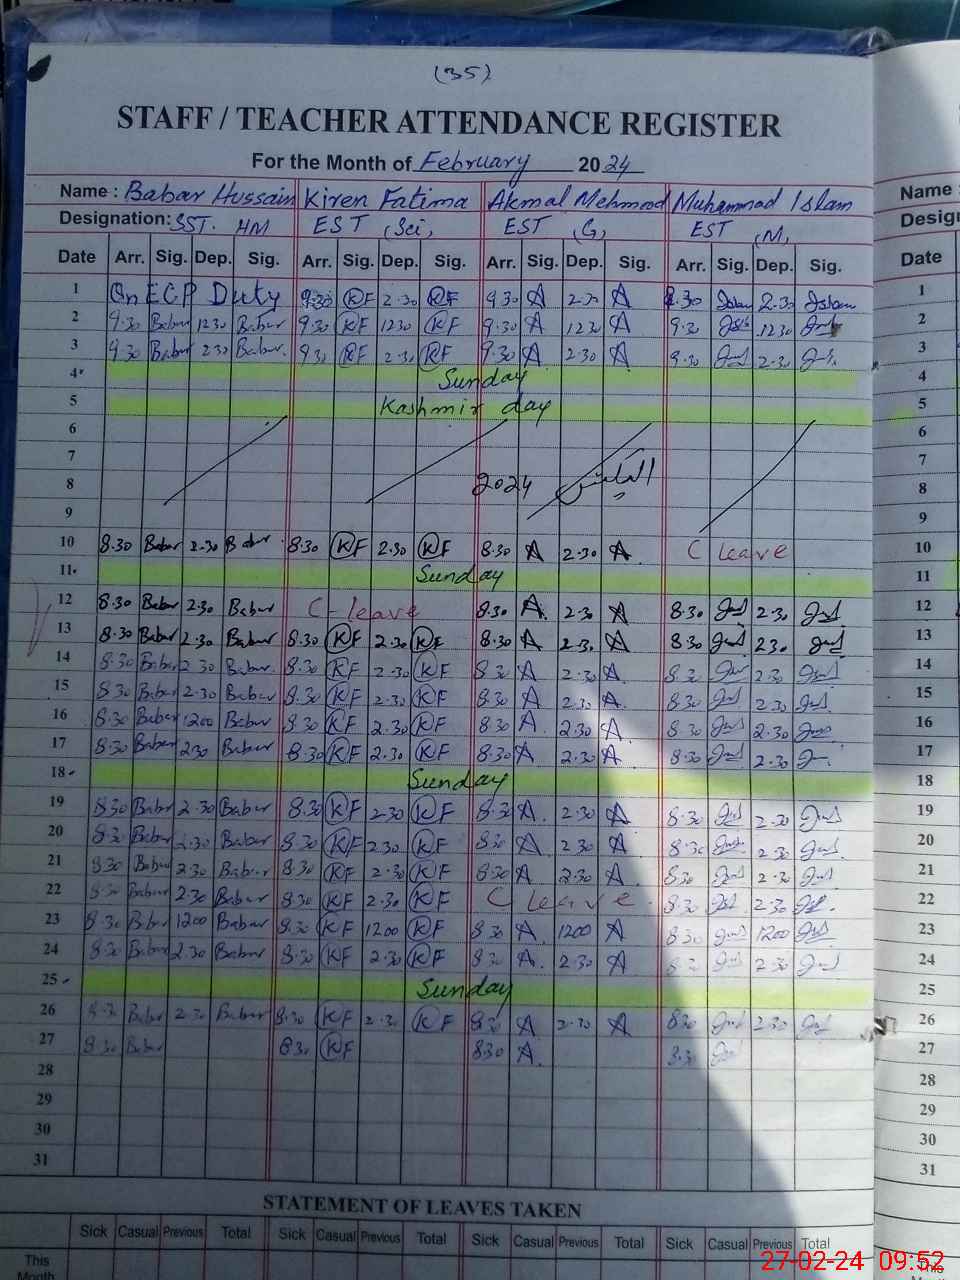 (35)
STAFF / TEACHER ATTENDANCE REGISTER
For the Month of February 2024
Name : Babar Hussain Kiren Fatima Akmal Mehmood Muhammad Islam Name :
Designation: SST. HM EST (Sci) EST (G) EST (M)
Date Arr. Sig. Dep. Sig. Arr. Sig. Dep. Sig. Arr. Sig. Dep. Sig. Arr. Sig. Dep. Sig. Date
1 On ECP Duty 9.30 KF 2.30 KF 9.30 A 2.30 A 9.30 Islam 2.30 Islam 1
2 9.30 Babar 1230 Babar 9.30 KF 1230 KF 9.30 A 1230 A 9.30 1230 2
3 9.30 Babar 2.30 Babar. 9.30 KF 2.30 KF 9.30 A 2.30 A 9.30 2.30 3
4 Sunday 4
5 Kashmir day 5
6 6
7 7
8 2024 8
9 9
10 8.30 Babar 2.30 Babar 8.30 KF 2.30 KF 8.30 A 2.30 A C leave 10
11 Sunday 11
12 8.30 Babar 2.30 Babar C-leave 8.30 A 2.30 A 8.30 2.30 12
13 8.30 Babar 2.30 Babar 8.30 KF 2.30 KF 8.30 A 2.30 A 8.30 2.30 13
14 8.30 Babar 2.30 Babar 8.30 KF 2.30 KF 8.30 A 2.30 A 8.30 2.30 14
15 8.30 Babar 2.30 Babar 8.30 KF 2.30 KF 8.30 A 2.30 A 8.30 2.30 15
16 8.30 Babar 1200 Babar 8.30 KF 2.30 KF 8.30 A 2.30 A 8.30 2.30 16
17 8.30 Babar 2.30 Babar 8.30 KF 2.30 KF 8.30 A 2.30 A 8.30 2.30 17
18 Sunday 18
19 8.30 Babar 2.30 Babar 8.30 KF 2.30 KF 8.30 A 2.30 A 8.30 2.30 19
20 8.30 Babar 2.30 Babar 8.30 KF 2.30 KF 8.30 A 2.30 A 8.30 2.30 20
21 8.30 Babar 2.30 Babar 8.30 KF 2.30 KF 8.30 A 2.30 A 8.30 2.30 21
22 8.30 Babar 2.30 Babar 8.30 KF 2.30 KF C leave 8.30 2.30 22
23 8.30 Babar 1200 Babar 8.30 KF 1200 KF 8.30 A 1200 A 8.30 1200 23
24 8.30 Babar 2.30 Babar 8.30 KF 2.30 KF 8.30 A 2.30 A 8.30 2.30 24
25 Sunday 25
26 8.30 Babar 2.30 Babar 8.30 KF 2.30 KF 8.30 A 2.30 A 8.30 2.30 26
27 8.30 Babar 8.30 KF 8.30 A 8.30 27
28 28
29 29
30 30
31 31
STATEMENT OF LEAVES TAKEN
Sick Casual Previous Total Sick Casual Previous Total Sick Casual Previous Total Sick Casual Previous Total
This Month This
27-02-24 09:52